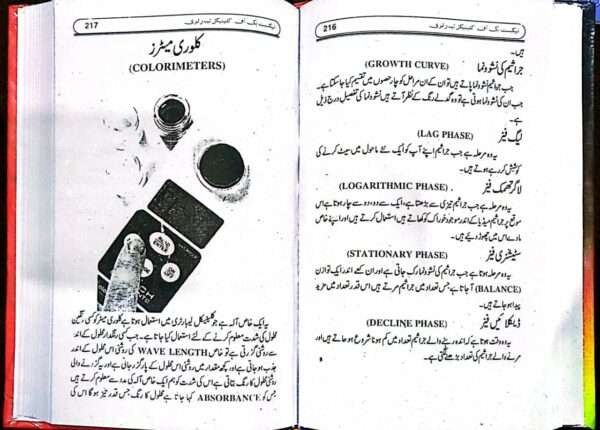 216
ٹیکسٹ بک آف کلینیکل لیبارٹری
ہیں۔
جراثیم کی نشوونما (GROWTH CURVE)
جب جراثیم نشوونما پاتے ہیں تو ان کے ان مراحل کو چار حصوں میں تقسیم کیا جاسکتا ہے۔
جب ان کی نشوونما ہوتی ہے تو وہ گدلے رنگ کے نظر آتے ہیں نشوونما کی تفصیل درج ذیل
ہے۔
لیگ فیز (LAG PHASE)
یہ وہ مرحلہ ہے جب جراثیم اپنے آپ کو ایک نئے ماحول میں سیٹ کرنے کی
کوشش کر رہے ہوتے ہیں۔
لاگرتھمک فیز (LOGARITHMIC PHASE)
یہ وہ مرحلہ ہے جب جراثیم تیزی سے بڑھتا ہے، ایک سے دو، دو سے چار ہوتا ہے اس
موقع پر جراثیم میڈیا کے اندر موجود خوراک کو کھاتے ہیں استعمال کرتے ہیں اور اپنے خاص
مادے اس میں چھوڑ دیتے ہیں۔
سٹیشنری فیز (STATIONARY PHASE)
یہ وہ مرحلہ ہوتا ہے جب جراثیم کی نشوونما رک جاتی ہے اور ان کے اندر ایک توازن
(BALANCE) آجاتا ہے جس تعداد میں جراثیم مرتے ہیں اس قدر تعداد میں مزید
پیدا ہو جاتے ہیں۔
ڈیکلائین فیز (DECLINE PHASE)
یہ وہ وقت ہوتا ہے کہ زندہ رہنے والے جراثیم تعداد میں کم ہونا شروع ہو جاتے ہیں اور
مرنے والے جراثیم کی تعداد بڑھنے لگتی ہے۔
217
ٹیکسٹ بک آف کلینیکل لیبارٹری
کلوری میٹرز
(COLORIMETERS)
یہ ایک خاص آلہ ہے جو کلینیکل لیبارٹری میں استعمال ہوتا ہے کلوری میٹر کو کسی رنگین
محلول کی شدت معلوم کرنے کے لئے استعمال کیا جاتا ہے۔ جب کسی رنگدار محلول کے اندر
سے روشنی گزرتی ہے تو خاص WAVE LENGTH کی روشنی اس محلول کے اندر
جذب ہو جاتی ہے اور کچھ مقدار میں روشنی اس محلول کے پار گزر جاتی ہے اور یہ گزرنے والی
روشنی محلول کا رنگ بتاتی ہے اس کی شدت کو ہم ایک خاص آلہ کی مدد سے معلوم کرتے ہیں
جس کو ABSORBANCE کہا جاتا ہے محلول کا رنگ جس قدر تیز ہوگا اس کی